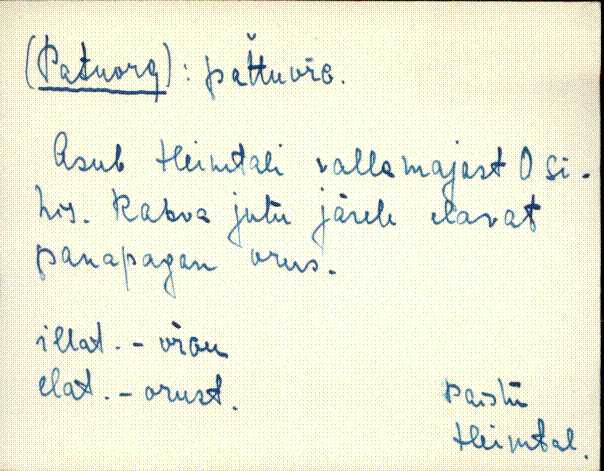 (Patuorg): pattuorG.
Asub Heimtali vallamajast O si-
his. Rahva jutu järele elavat
panapagan orus.
illat. - orGu
elat. - orust.
Paistu
Heimtal.